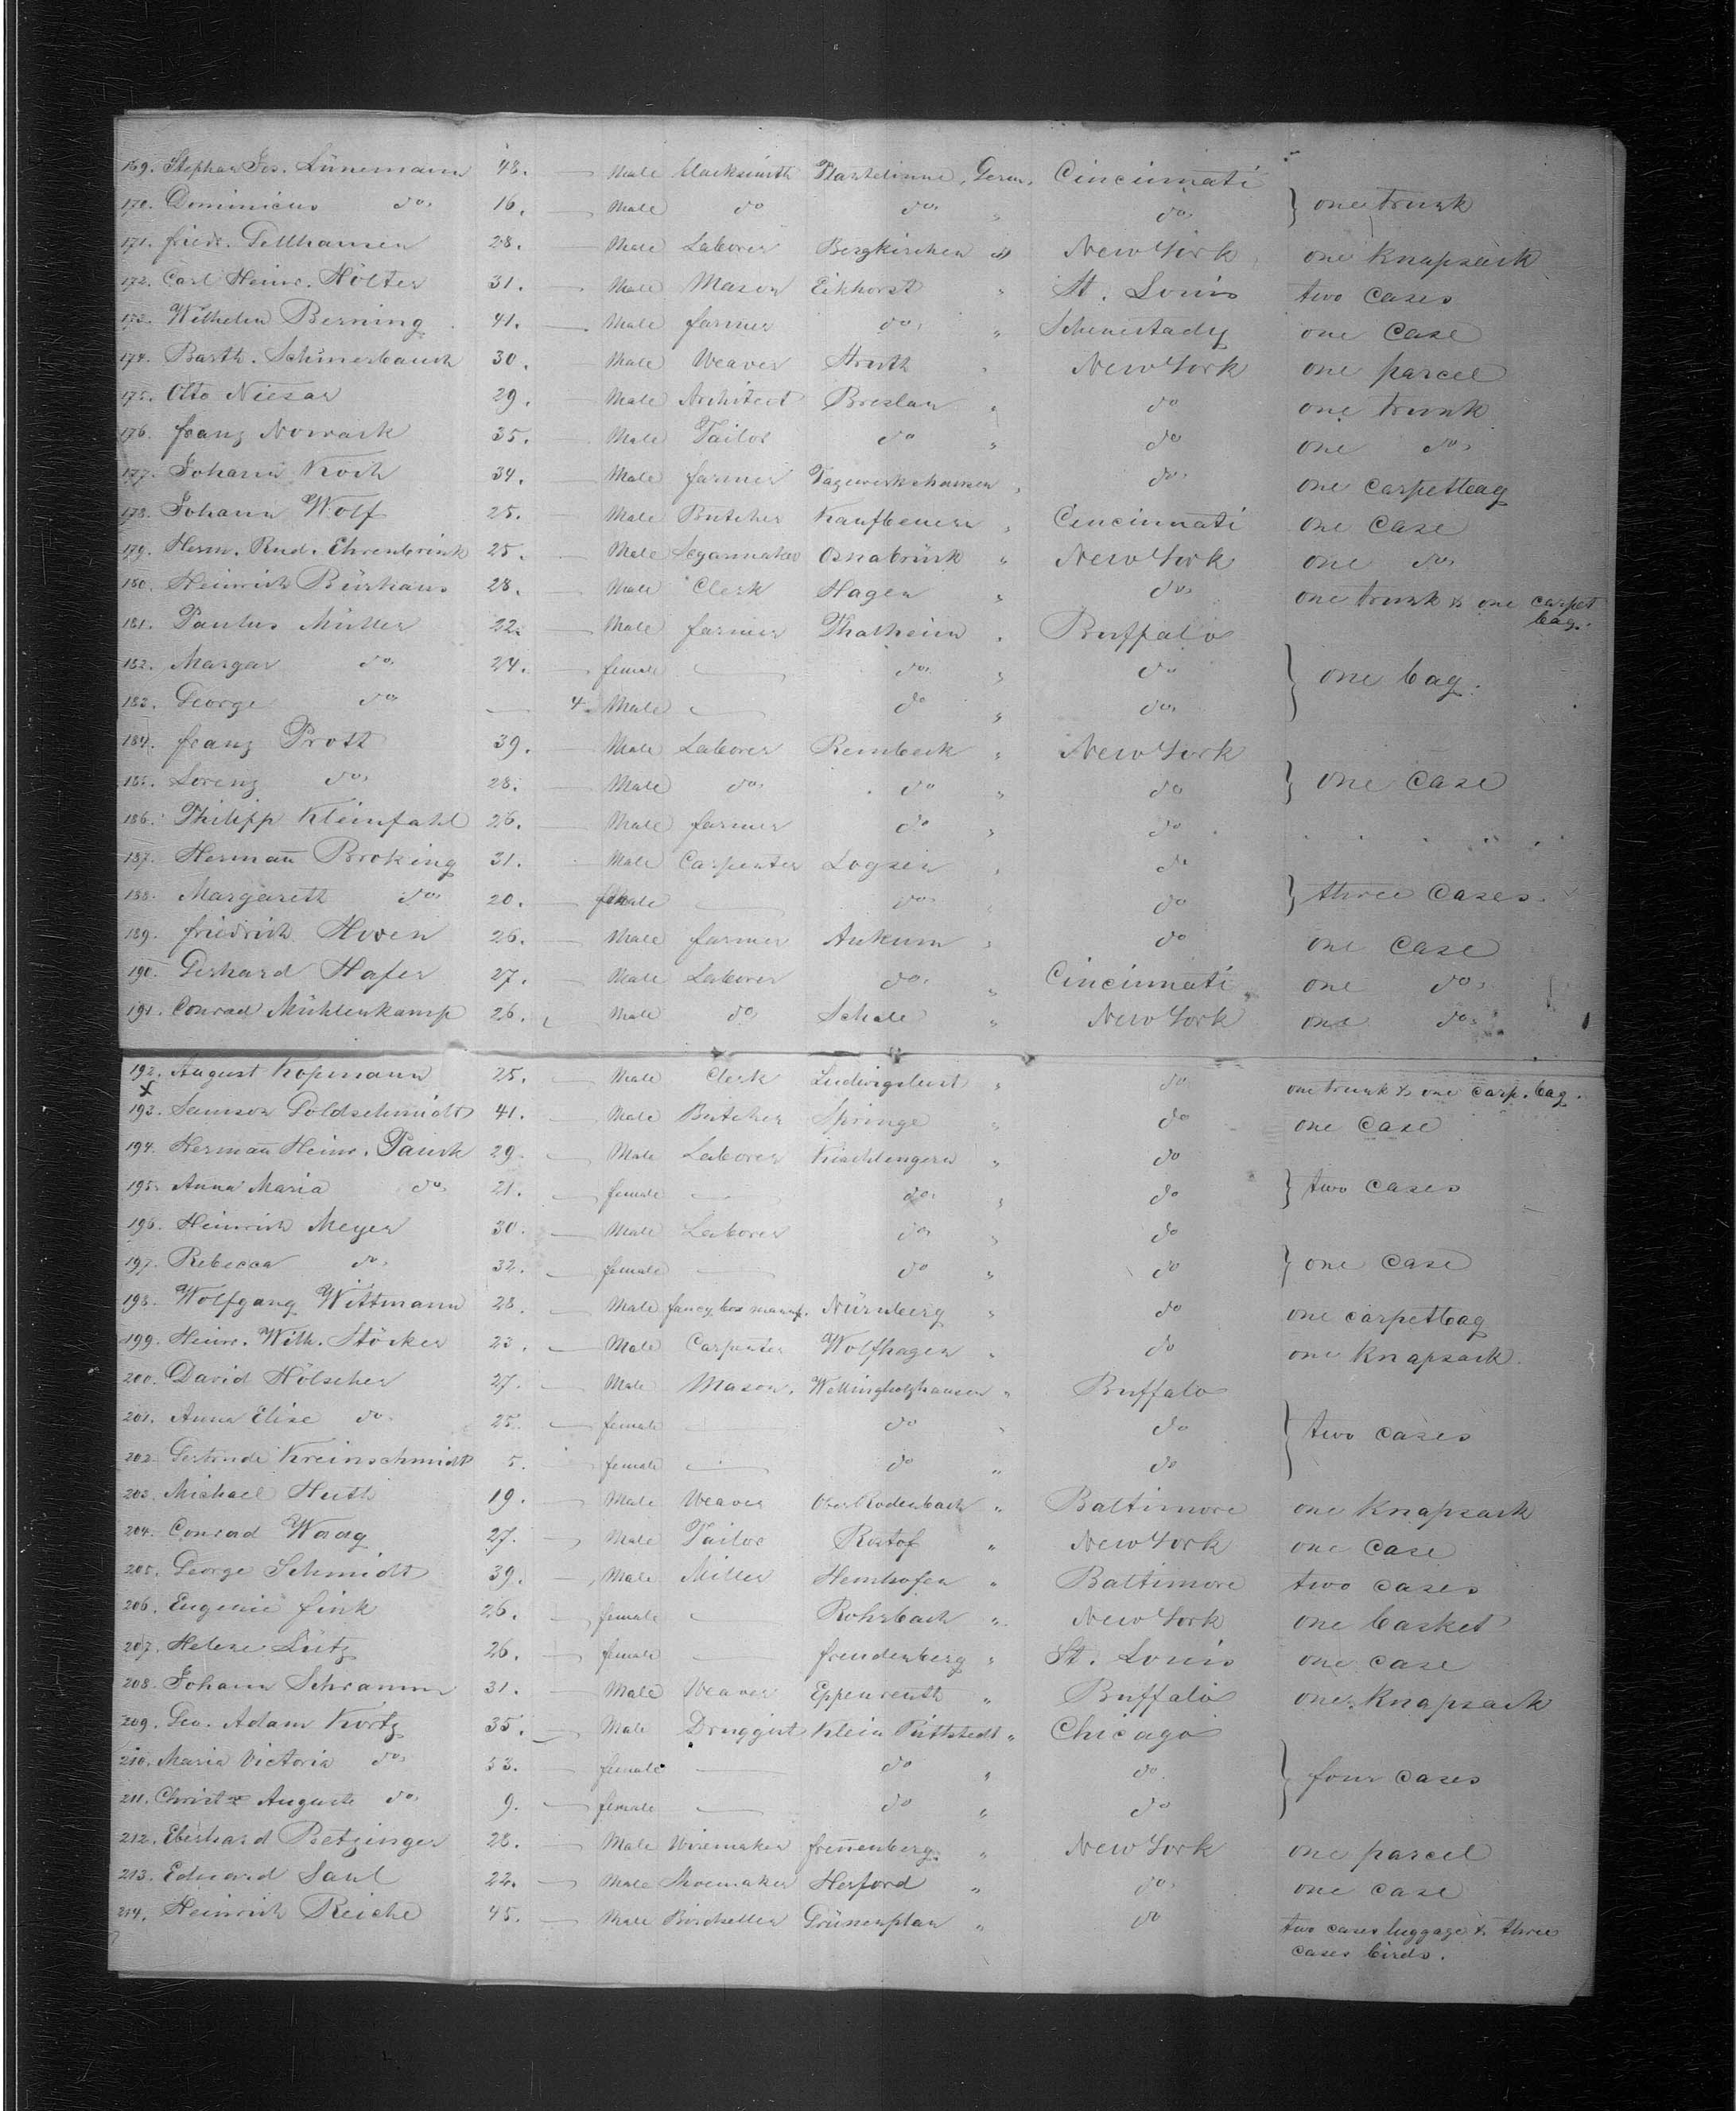 169. Stephan Jos. Lünemann 48. — Male blacksmith Plantlünne, Germ. Cincinnati
170. Dominicus do. 16. — Male do do. " do. } one trunk
171. friedr. Gellhausen 28. — Male Laborer Bergkirchen " New York one Knapsack
172. Carl Heinr. Hölter 31. — Male Mason Eikhorst " St. Louis two cases
173. Wilhelm Berning 41. — Male farmer do. " Schenestady one Case
174. Barth. 30. — Male Weaver Struth " New York one parcel
175. Otto Niesar 29. — Male Architect Breslau " do one trunk
176. franz Nowack 35. — Male Tailor do " do one do.
177. Johann Koch 34. — Male farmer " do. one carpetbag
178. Johann Wolf 25. — Male Butcher Kaufbeuern " Cincinnati one Case
179. Herm. Rud. Ehrenbrink 25. — Male Segarmaker Osnabrück " New York one do.
180. Heinrich Bürhaus 28. — Male Clerk Hagen " do. one trunk & one carpet
bag.
181. Paulus Müller 22. — Male farmer Thalheim " Buffalo
182. Margar do. 24. — female — do. " do } one bag.
183. George do — 4. Male — do " do.
184. franz Prott 39. — Male Laborer Rembeck " New York
185. Lorenz do. 28. — Male do. do " do } one case
186. Philipp Kleinfahl 26. — Male farmer do " do
187. Hermañ Broking 31. Male Carpenter Logsen " do
188. Margareth do. 20. — female — do. " do } three Cases.
189. friedrich Hoven 26. — Male farmer Ankum " do one Case
190. Gerhard Hafer 27. — Male Laborer do. " Cincinnati one do.
191. Conrad Mühlenkamp 26. Male do. Schale " New York one do.
192. August Kopmann 25. — Male Clerk Ludwigslust " do one trunk & one carp. bag.
x
193. Samson Goldschmidt 41. — Male Butcher Springe " do one case
194. Hermañ Heinr. 29. — Male Laborer Kirchlengern " do
195. Anna Maria do. 21. — female — do. " do } two cases
196. Heinrich Meyer 30. — Male Laborer do. " do
197. Rebecca do. 32. — female — do " do } one case
198. Wolfgang Wittmann 28. — Male fancy box manuf. Nürnberg " do one carpetbag
199. Heinr. Wilh. Stöcker 23. — Male Carpenter Wolfhagen " do one Knapsack.
200. David Hölscher 27. — Male Mason. Wellingholzhausen " Buffalo
201. Anna Elise do. 25. — female — do " do } two cases
202. Gertrude Kreinschmidt 5. female — do " do
203. Michael Huth 19. — Male Weaver Ober Rodenbach " Baltimore one Knapsack
204. Conrad Waag 27. — Male Tailor " New York one case
205. George Schmidt 39. — Male Miller Hemhofen " Baltimore two cases
206. Eugenie fink 26. — female — Rohrbach " New York one basket
207. Helene Lutz 26. — female — freudenberg " St. Louis one case
208. Johann Schramm 31. — Male Weaver Eppenreuth " Buffalo one Knapsack
209. Geo. Adam Kortz 35. — Male Druggist Klein " Chicago
210. Maria Victoria do. 33. — female — do " do. } four cases
211. Auguste do. 9. — female — do " do
212. Eberhard Betzinger 28. — Male Wiremaker " New York one parcel
213. Eduard Saul 22. — Male Shoemaker Herford " do. one case
214. Heinrich Reiche 45. — Male Birdseller Grünenplan " do two cases luggage & three
cases birds.